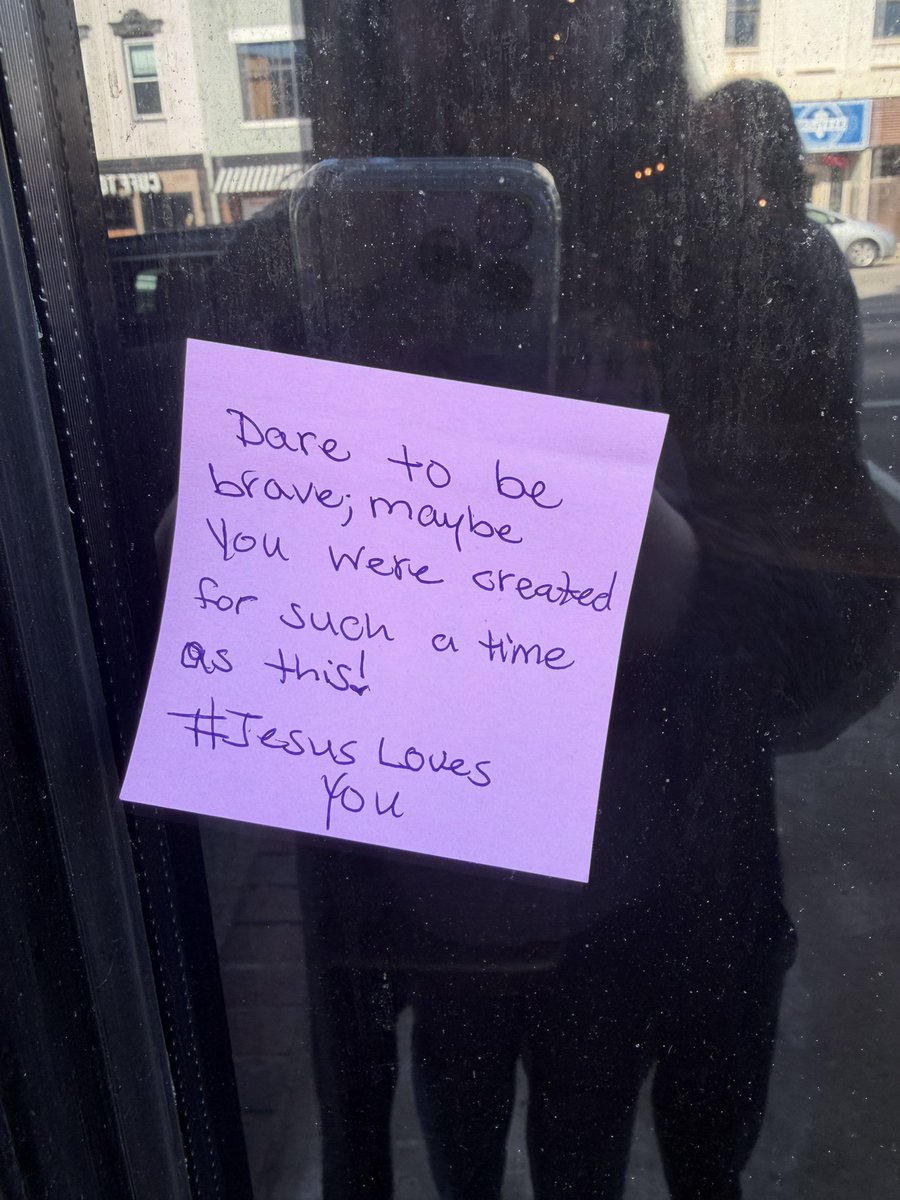 Dare to be
brave; maybe
you were created
for such a time
as this!
#Jesus Loves
You